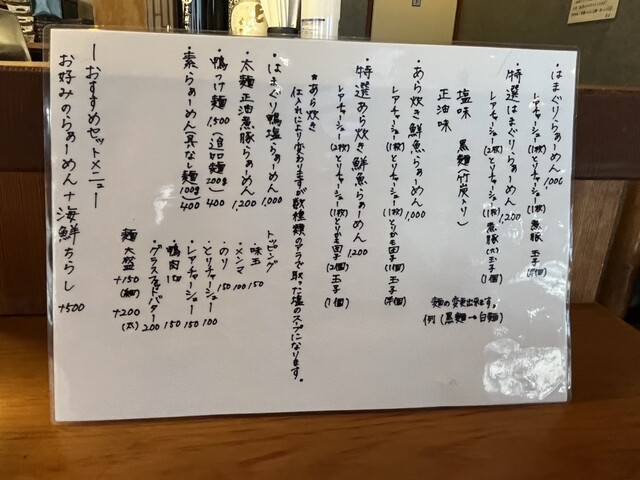 ・はまぐりらぁーめん 1,000
レアチャーシュー(1枚)とりチャーシュー(1枚)煮豚 玉子
・特選はまぐりらぁーめん 1,200
レアチャーシュー(2枚)とりチャーシュー(1枚)煮豚(大)玉子(1個)
塩味 黒麺(竹炭入り)
正油味
・あら炊き鮮魚らぁーめん 1,000
レアチャーシュー(1枚)とりチャーシュー(1枚)とりかも団子(1個)玉子
・特選あら炊き鮮魚らぁーめん 1,200
レアチャーシュー(2枚)とりチャーシュー(1枚)とりかも団子(2個)玉子(1個)
*あら炊き
仕入れにより変わりますが数種類のアラで取った塩のスープになります。
麺の変更出来ます。
例(黒麺→白麺)
・はまぐり鴨塩らぁーめん 1,000
・太麺正油煮豚らぁーめん 1,200
・鴨つけ麺 1,500(追加麺200g)400
・素らぁーめん具なし麺100g)400
トッピング
・味玉 150
・メンマ 100
・のり 150
・とりチャーシュー 100
・レアチャーシュー 150
・鴨肉 150
・グラスフェッドバター 200
麺大盛 +150(細)
+200(太)
ーおすすめセットメニュー
お好みのらぁーめん+海鮮ちらし +500